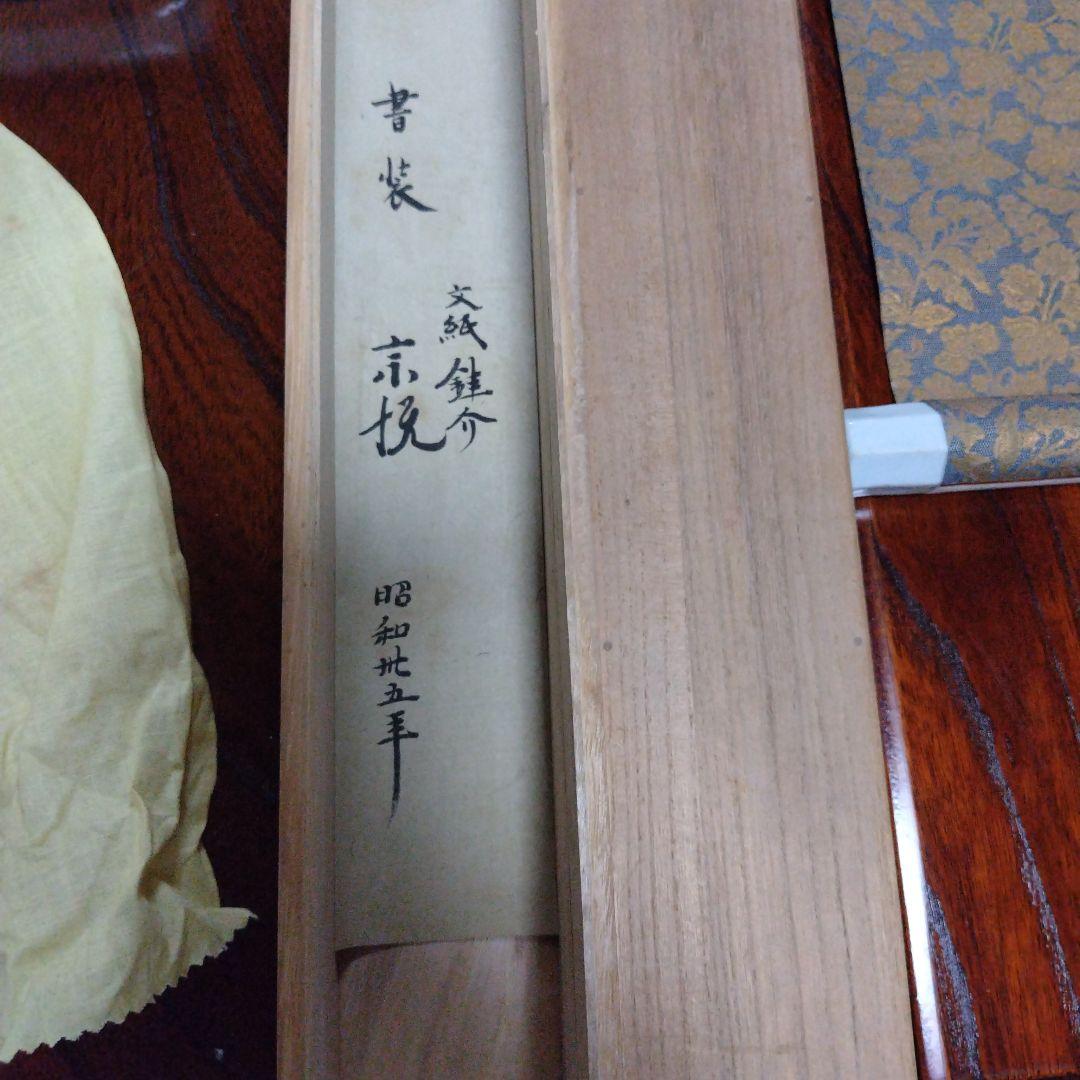 文紙 銈介
書装 宗悦 昭和卅五年